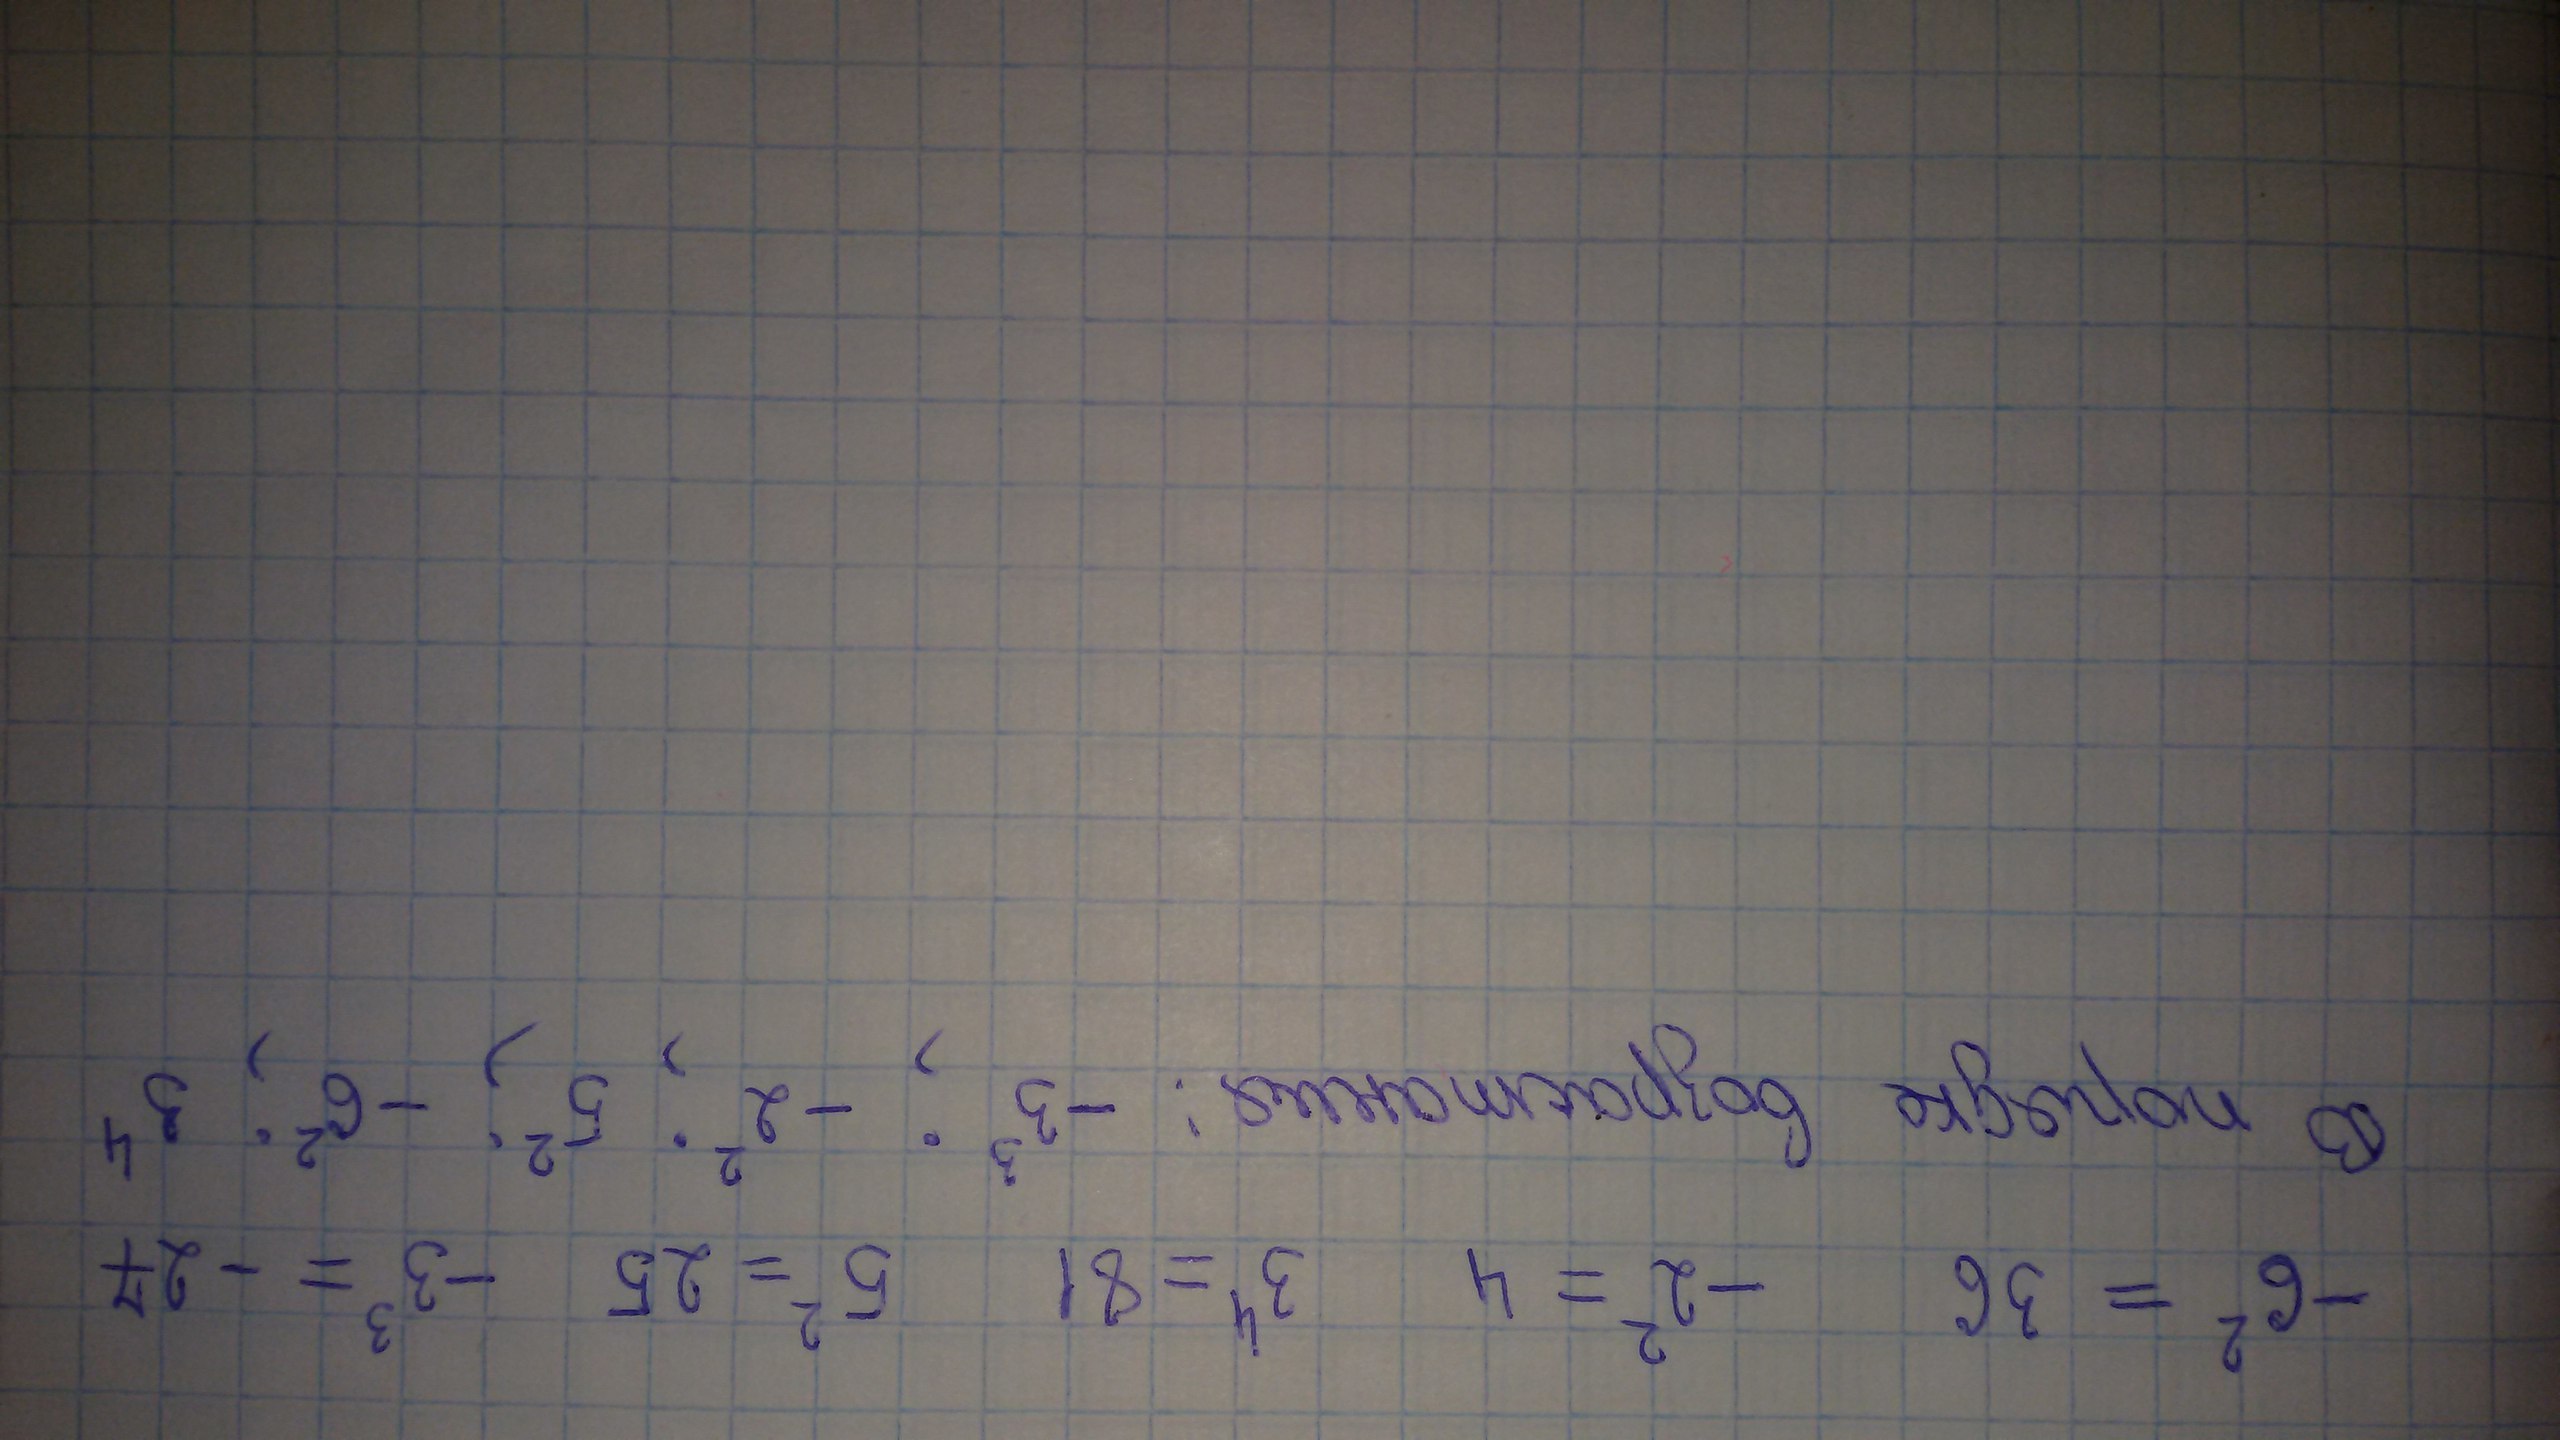 -6² = 36 -2² = 4 3⁴ = 81 5² = 25 -3³ = -27
В порядке возрастания: -3³; -2²; 5²; -6²; 3⁴